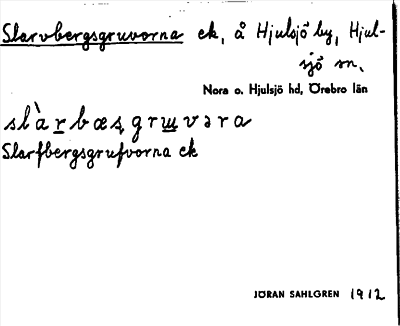 Slarvbergsgruvorna ek, å Hjulsjö by, Hjul-
sjö sn.
Nora o. Hjulsjö hd, Örebro län
slàrbæsgrɯvəra
Slarfbergsgrufvorna ek
JÖRAN SAHLGREN 1912